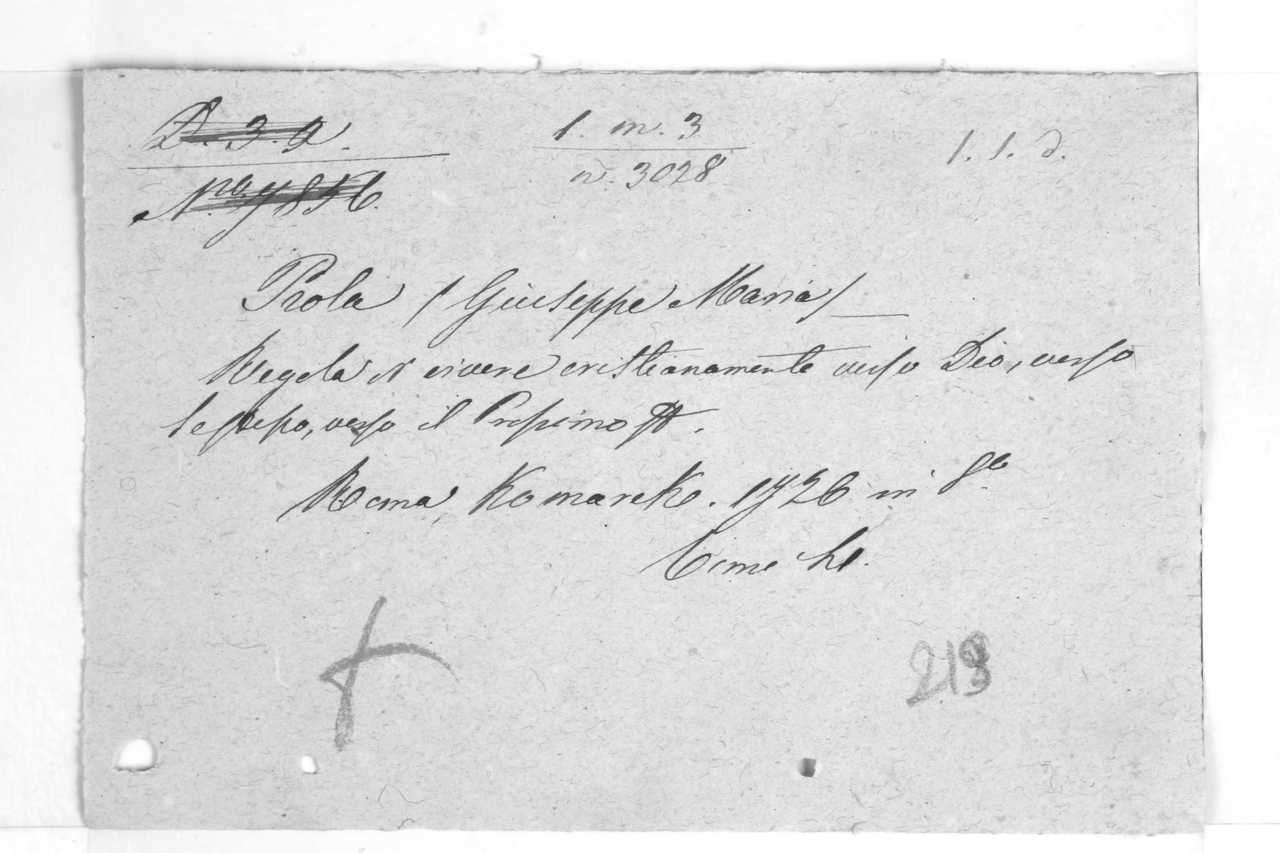 D. 3. a.
1. m. 3
1. 1. d.
n. 3028
Prola / Giuseppe Maria /
Regola di vivere cristianamente verso Dio, verso
se stesso, verso il Prossimo
Roma, Komarek. 1726 in 8º
213